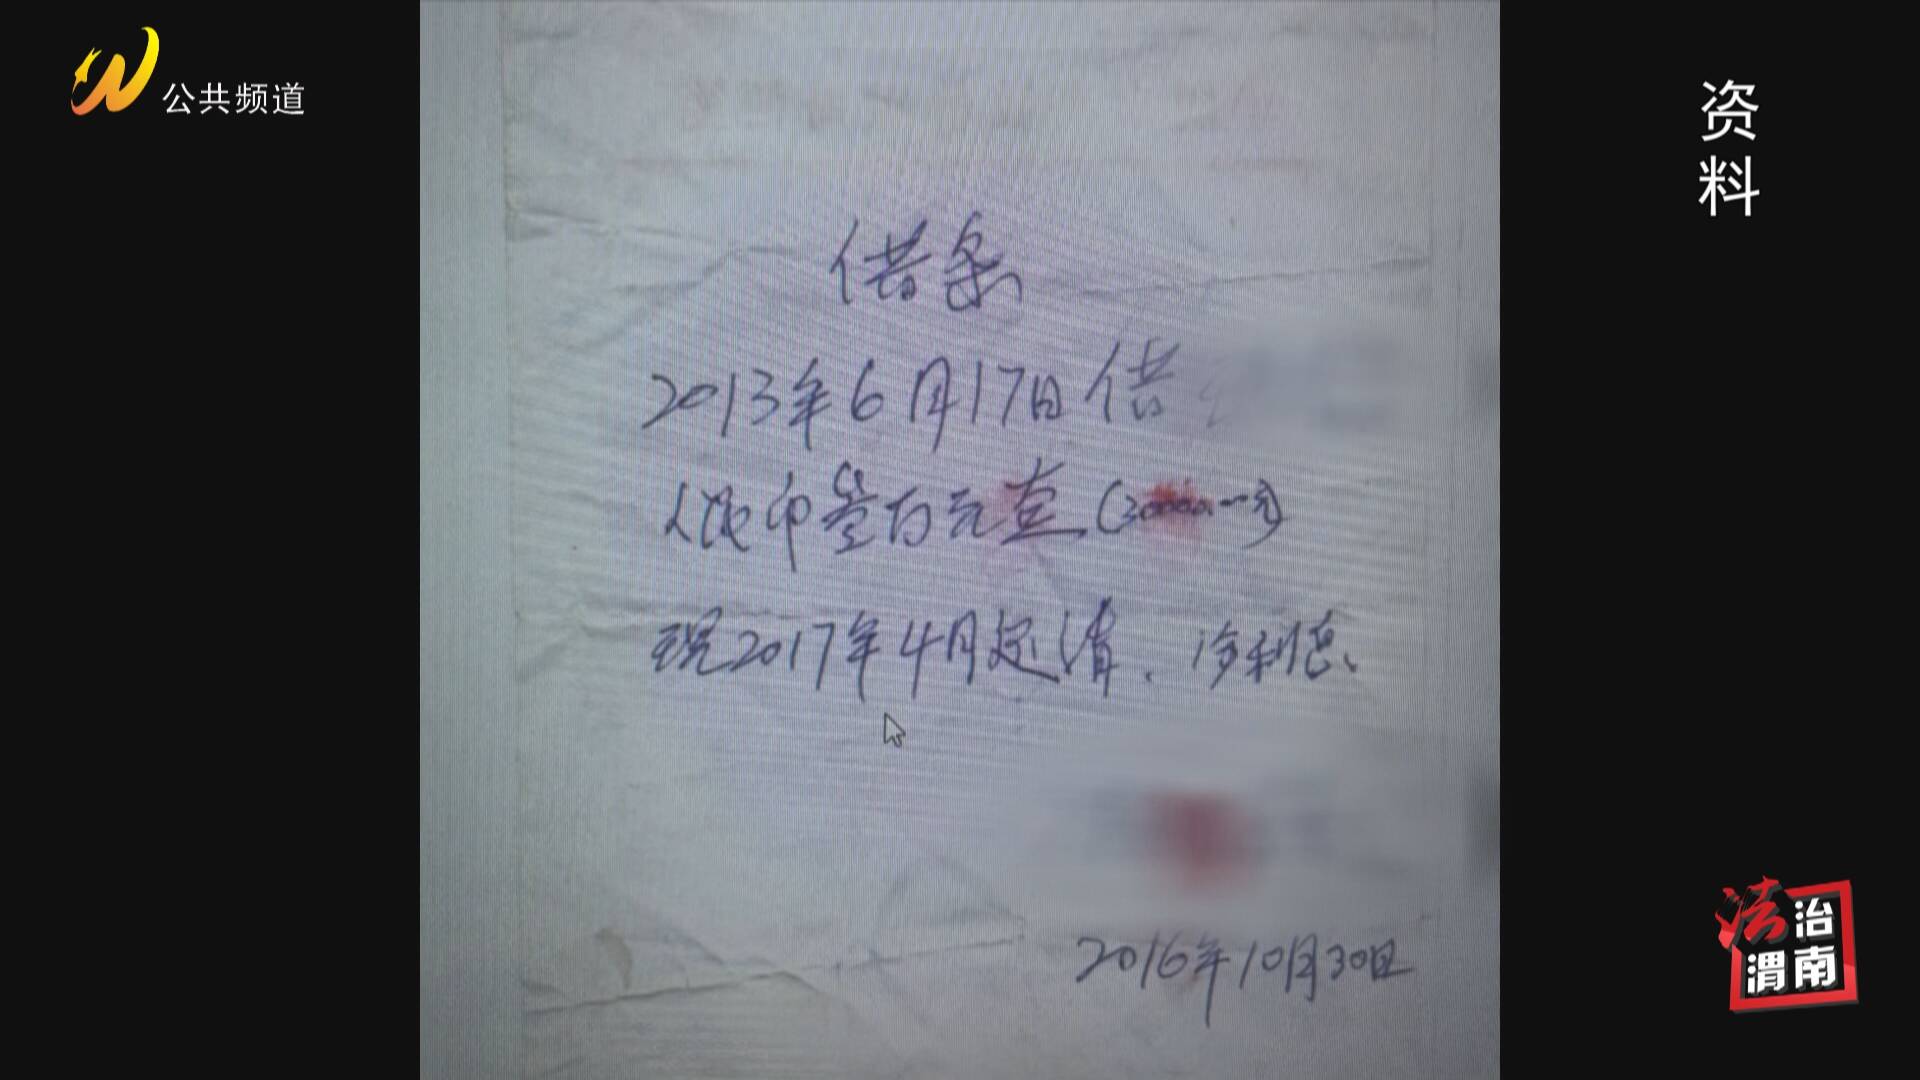 公共频道
资料
借条
2013年6月17日借
人民币叁万元整(30000.一元)
现2017年4月还清、
2016年10月30日
法治
渭南